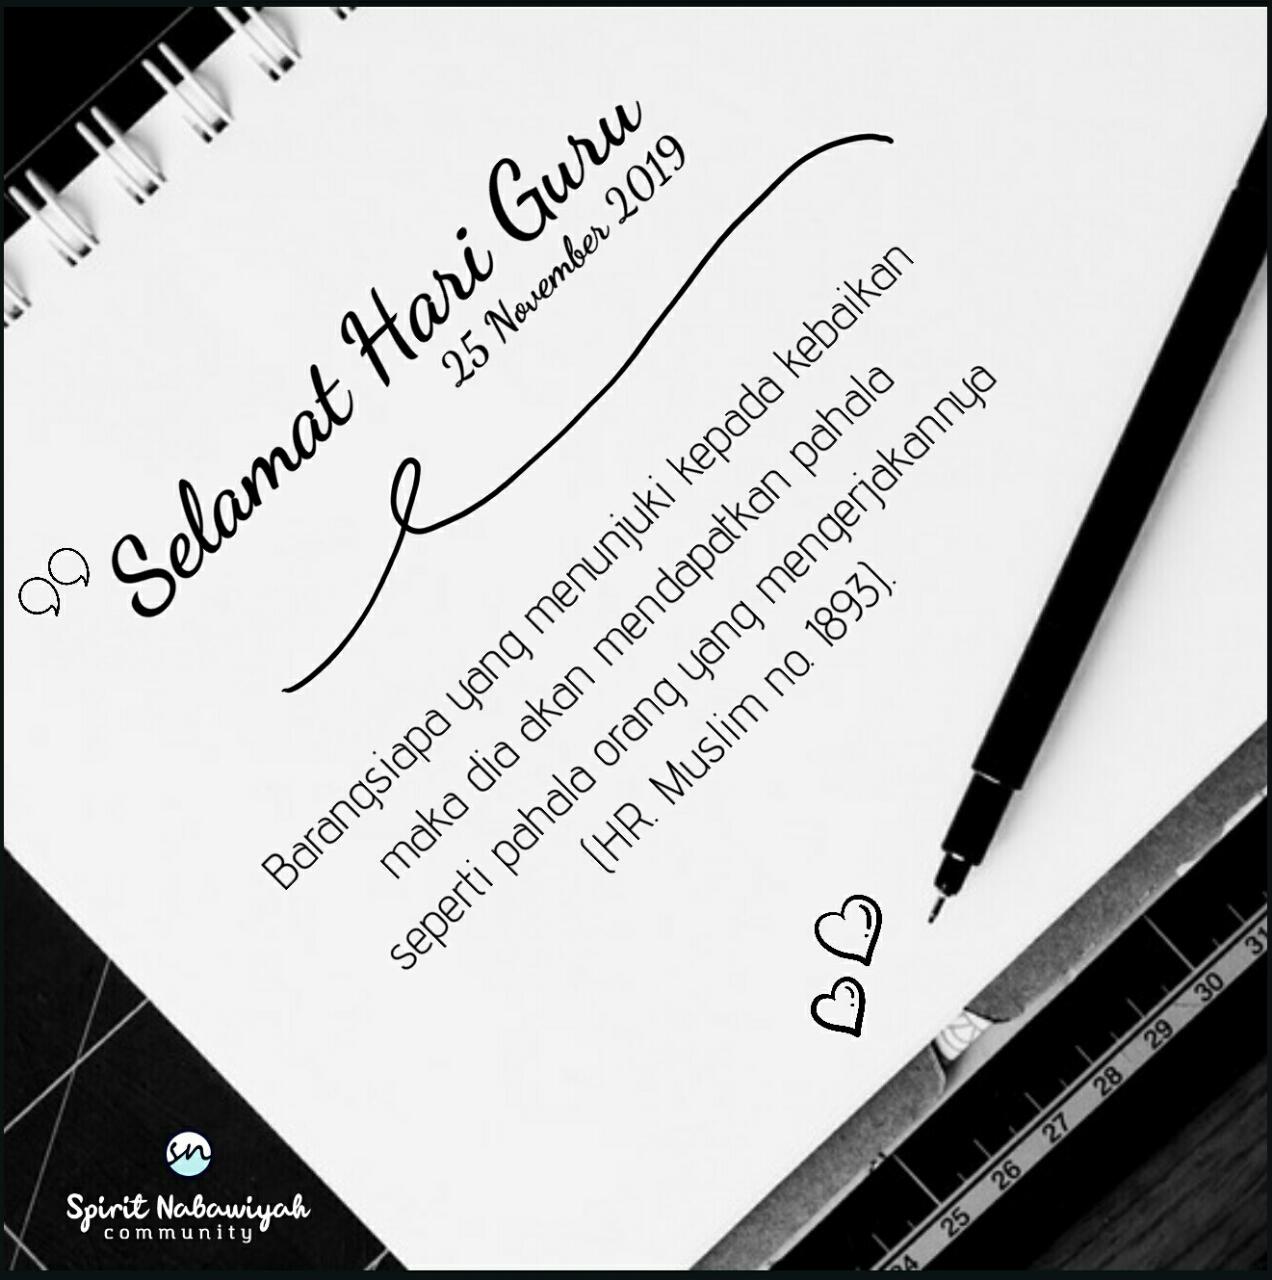 Selamat Hari Guru
25 November 2019
Barangsiapa yang menunjuki kepada kebaikan
maka dia akan mendapatkan pahala
seperti pahala orang yang mengerjakannya
(HR. Muslim no. 1893).
31
30
29
28
27
26
25
24
sn
Spirit Nabawiyah
community